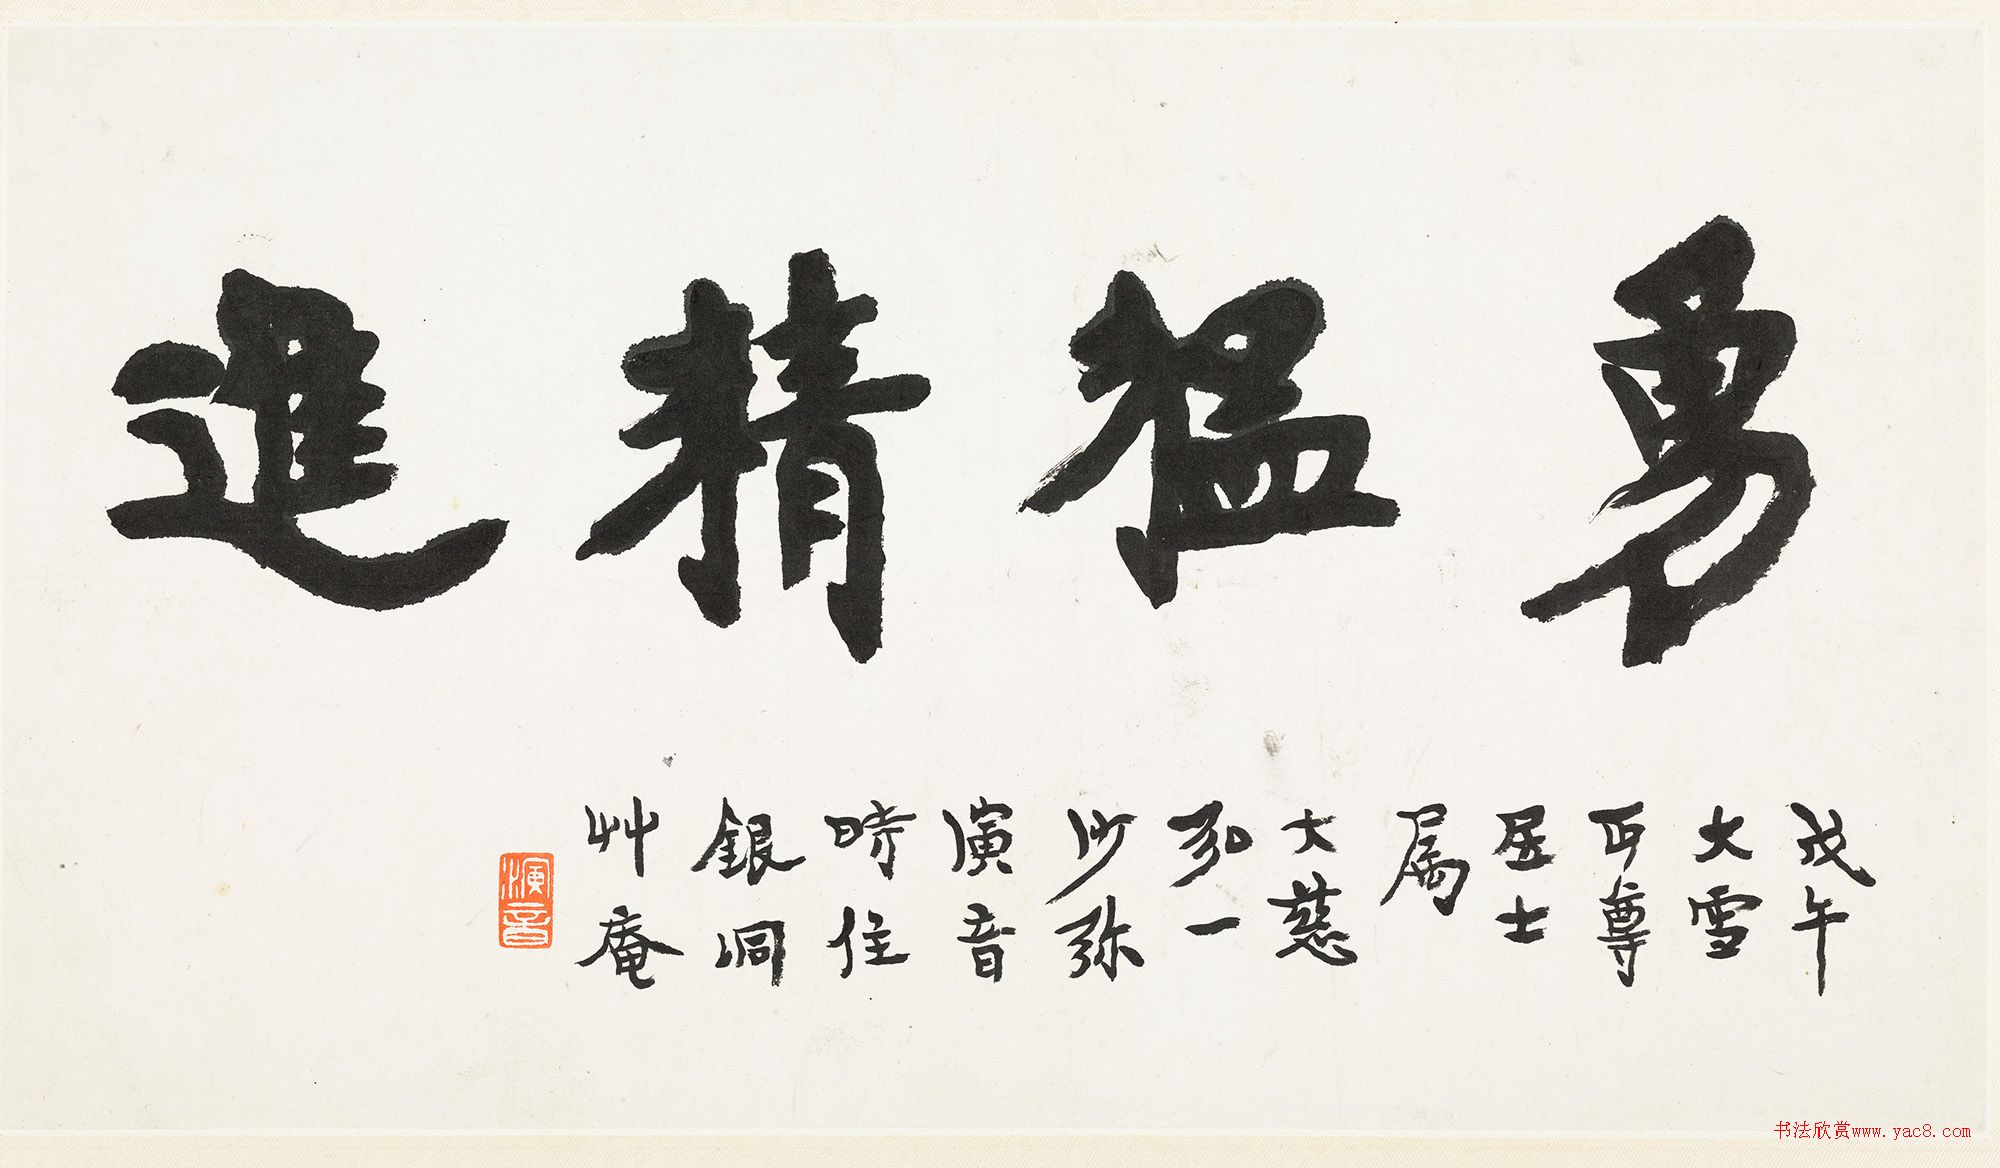 勇猛精進
戊午
大雪
丏尊
居士
属
大慈
弘一
沙弥
演音
時住
銀洞
艸庵
演音
书法欣赏www.yac8.com